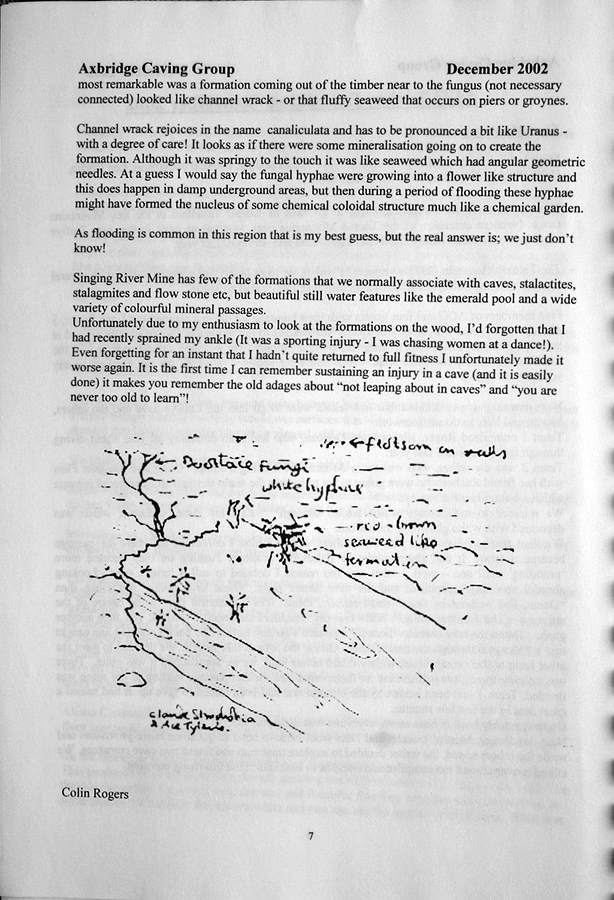 Axbridge Caving Group December 2002
most remarkable was a formation coming out of the timber near to the fungus (not necessary
connected) looked like channel wrack - or that fluffy seaweed that occurs on piers or groynes.
Channel wrack rejoices in the name canaliculata and has to be pronounced a bit like Uranus -
with a degree of care! It looks as if there were some mineralisation going on to create the
formation. Although it was springy to the touch it was like seaweed which had angular geometric
needles. At a guess I would say the fungal hyphae were growing into a flower like structure and
this does happen in damp underground areas, but then during a period of flooding these hyphae
might have formed the nucleus of some chemical coloidal structure much like a chemical garden.
As flooding is common in this region that is my best guess, but the real answer is; we just don't
know!
Singing River Mine has few of the formations that we normally associate with caves, stalactites,
stalagmites and flow stone etc, but beautiful still water features like the emerald pool and a wide
variety of colourful mineral passages.
Unfortunately due to my enthusiasm to look at the formations on the wood, I'd forgotten that I
had recently sprained my ankle (It was a sporting injury - I was chasing women at a dance!).
Even forgetting for an instant that I hadn't quite returned to full fitness I unfortunately made it
worse again. It is the first time I can remember sustaining an injury in a cave (and it is easily
done) it makes you remember the old adages about "not leaping about in caves" and "you are
never too old to learn"!
flotsam on walls
Fungi
white hyphae
red-brown
seaweed like
formation
Colin Rogers
7